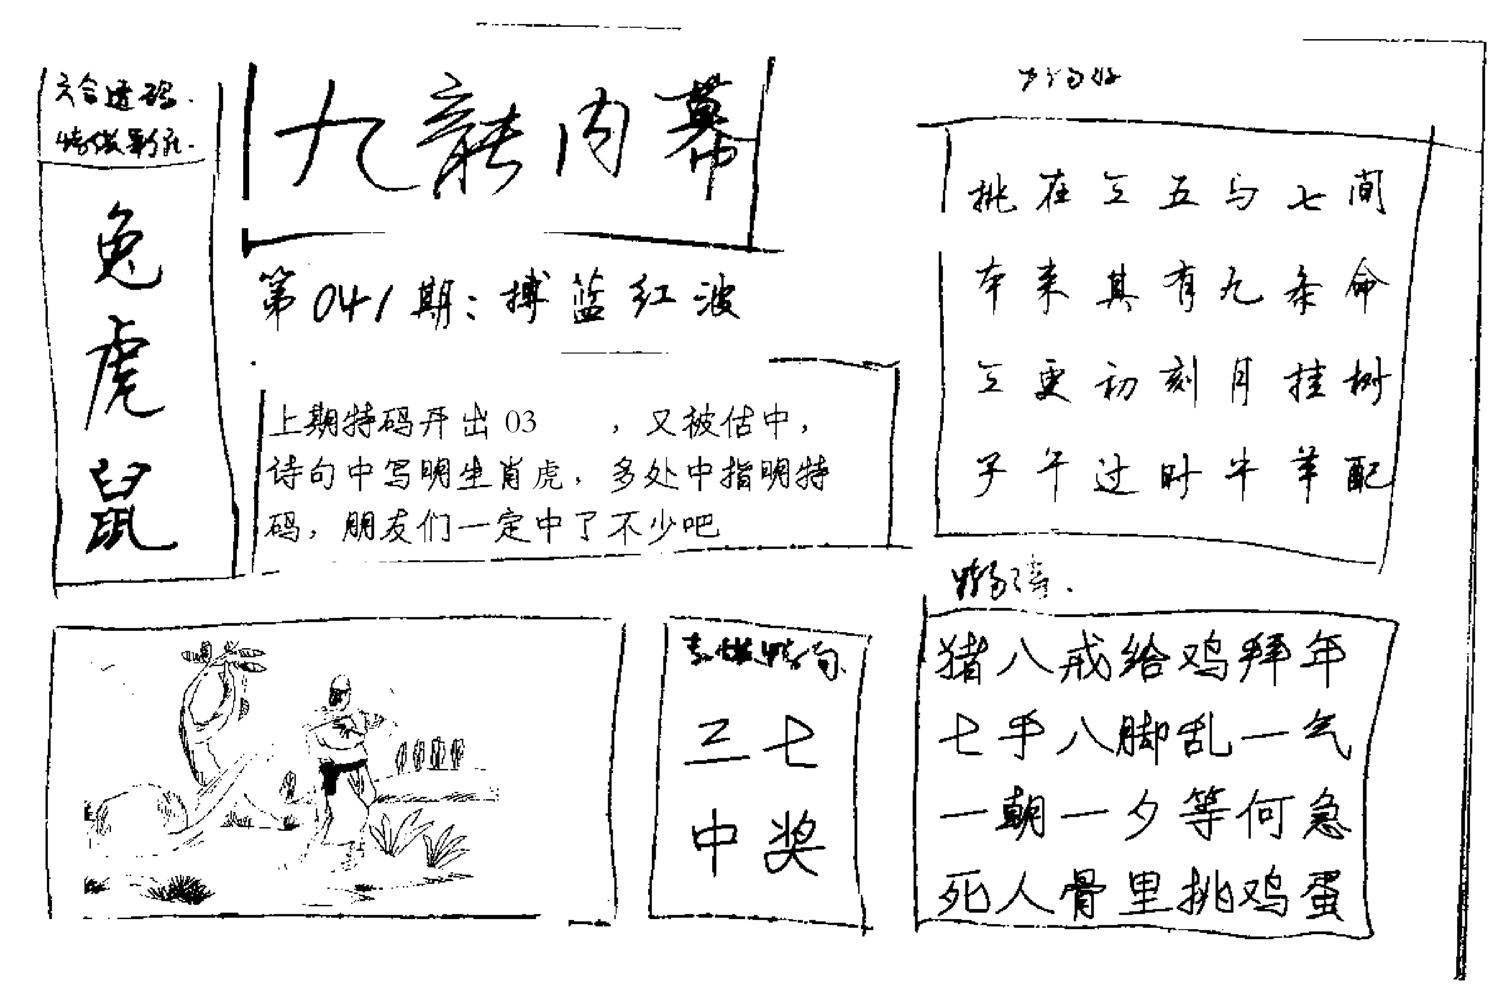 六合透码.
九龙内幕
兔
虎
鼠
第041期：搏蓝红波
上期特码开出 03 ，又被估中，
诗句中写明生肖虎，多处中指明特
码，朋友们一定中了不少吧
挑在三五与七间
本来其有九条命
三更初刻月挂树
子午过时牛羊配
猪八戒给鸡拜年
七手八脚乱一气
一朝一夕等何急
死人骨里挑鸡蛋
三七
中奖